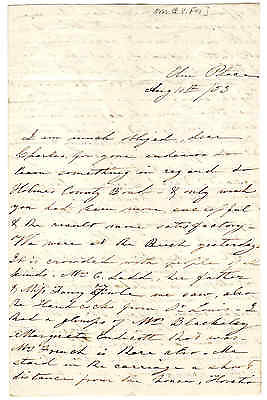 Elm Place
Aug 10th /83
I am much obliged, dear
Charles, for your endeavor to
learn something in regard to
Holmes County Bond - & only wish
you had been more successful
& the result more satisfactory -
We were at the Beach yesterday
It is crowded with people - &
kinds. Mr C. Ladd her father
& Miss Fanny we saw, also
from St Louis - I
had a glimpse of Mrs Blackeley
Margaret that was.
Mrs French is there also. We
staid in the carriage a short
distance from the house,